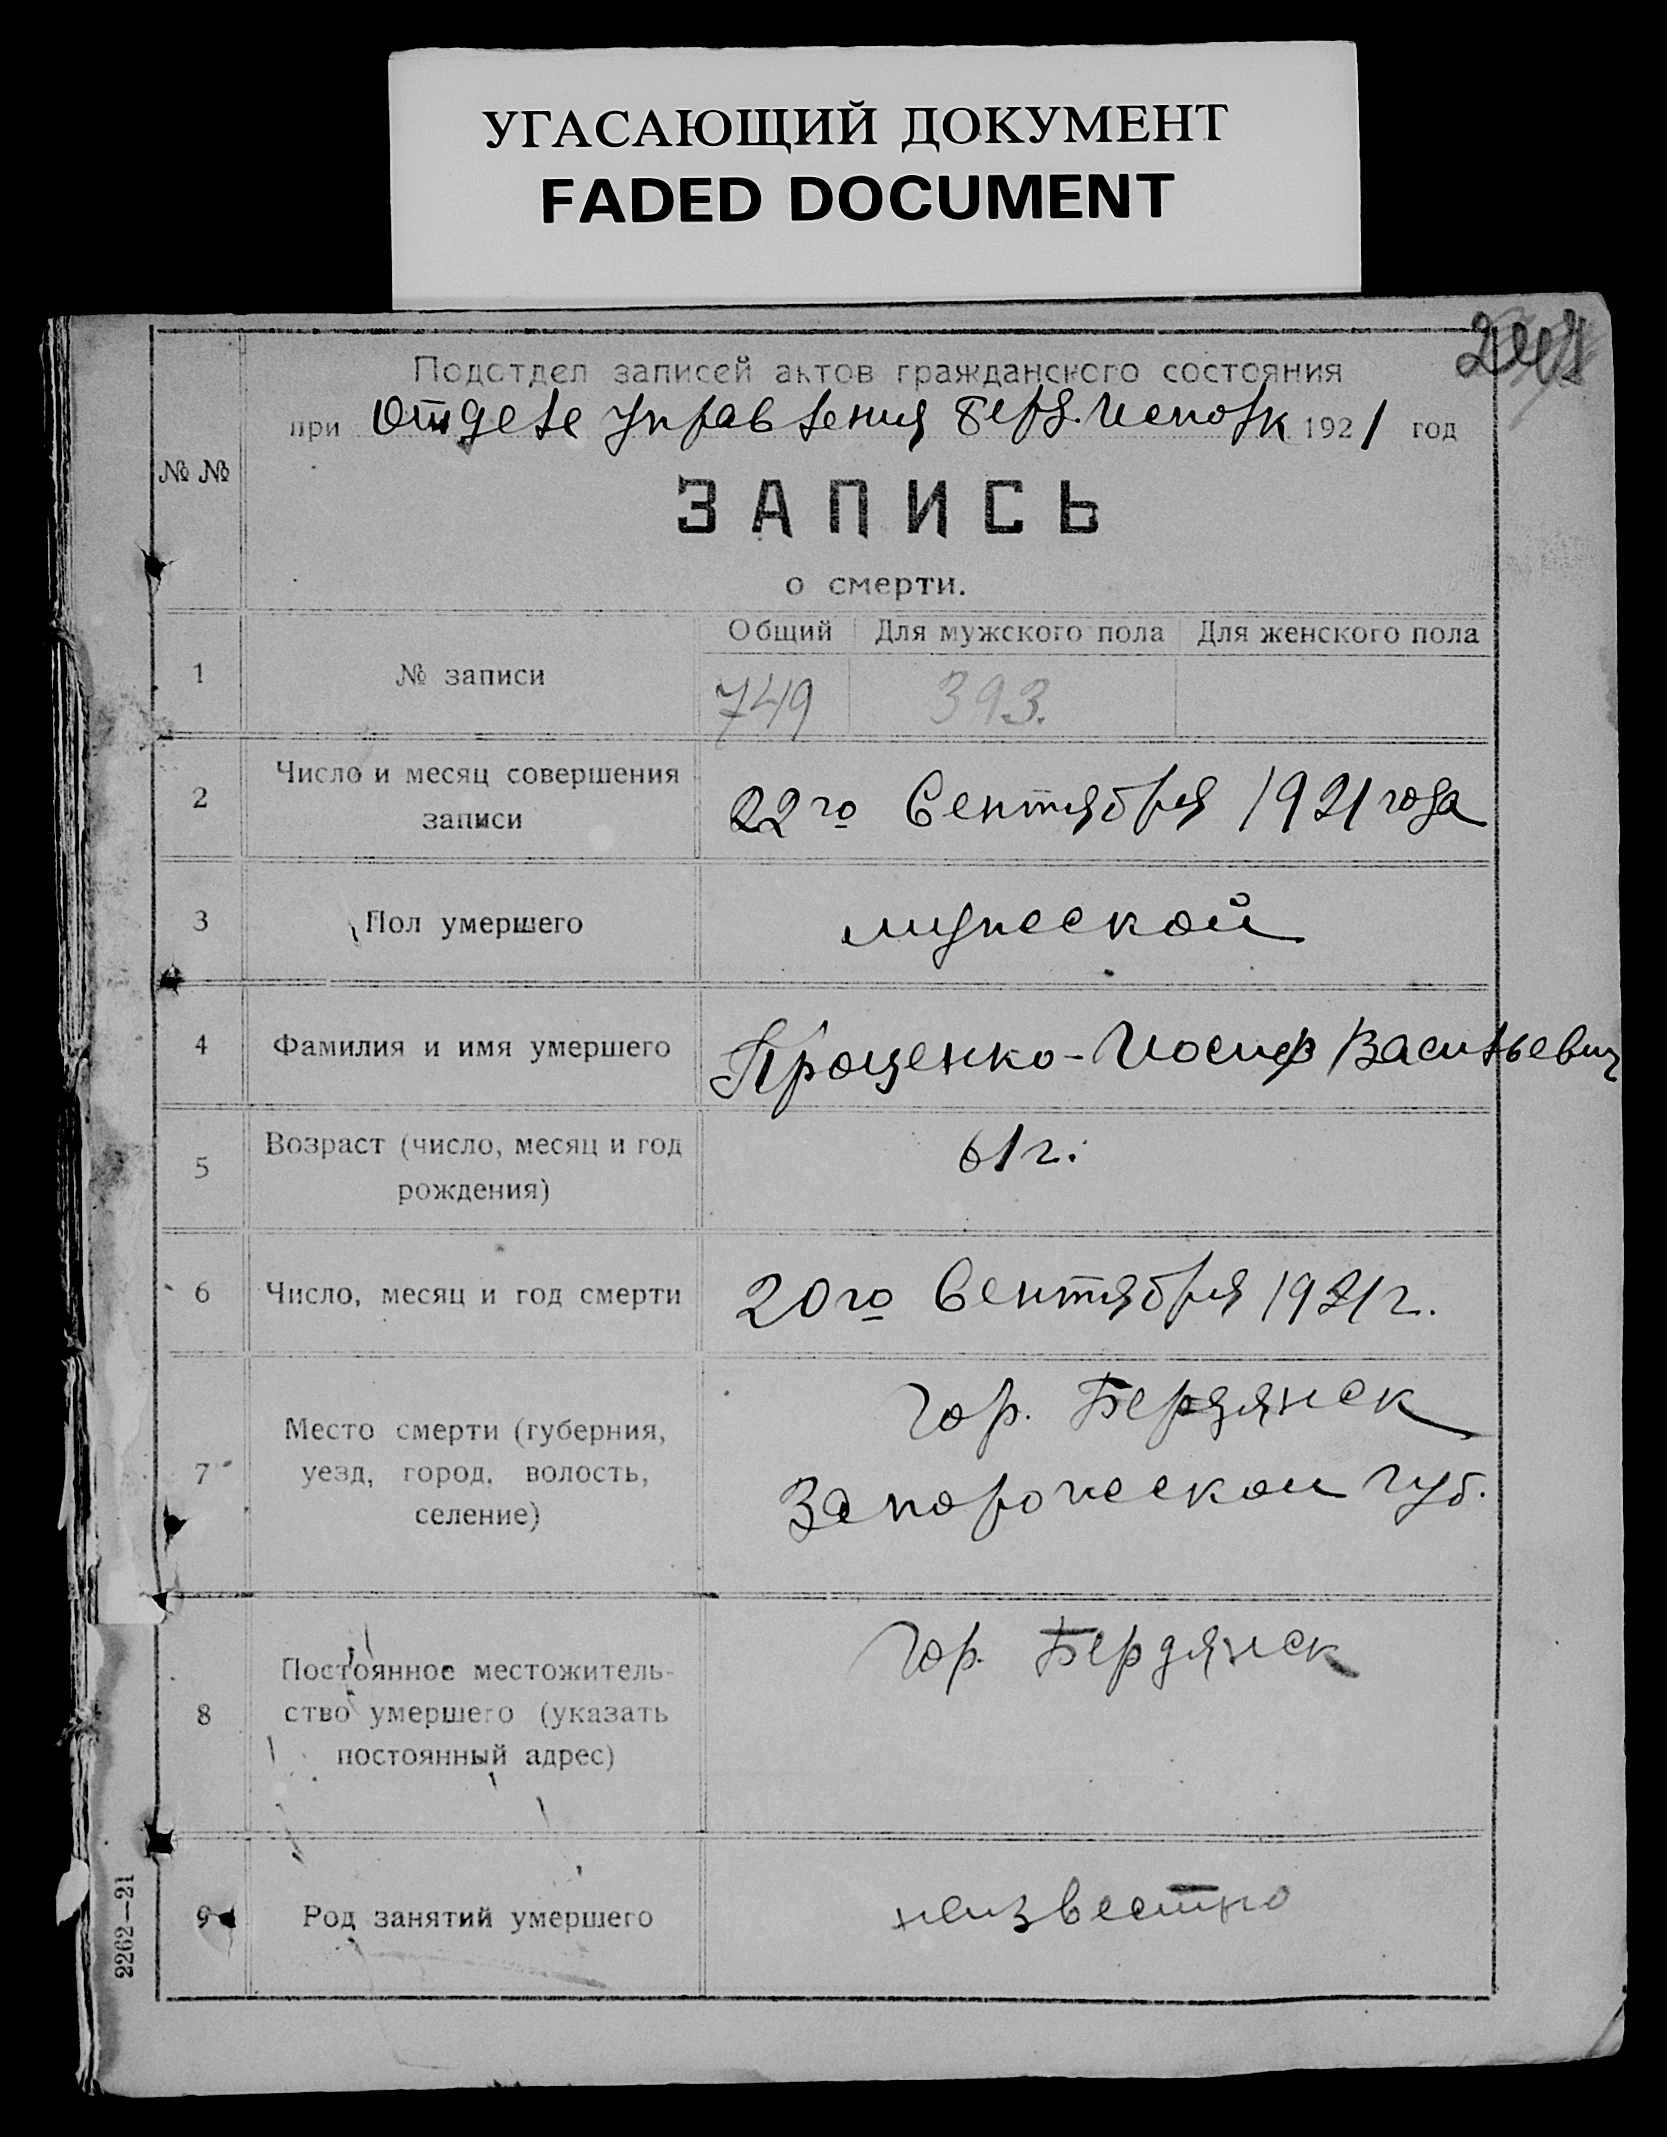 УГАСАЮЩИЙ ДОКУМЕНТ
FADED DOCUMENT
Подотдел записей актов гражданского состояния
при Отделе Управления Берд. Исполк 1921 год
№ №
ЗАПИСЬ
о смерти.
Общий Для мужского пола Для женского пола
1 № записи 749 393.
2 Число и месяц совершения
записи 22го Сентября 1921 года
3 Пол умершего мужской
4 Фамилия и имя умершего Проценко-Иосиф Васильевич
5 Возраст (число, месяц и год
рождения) 61 г.
6 Число, месяц и год смерти 20го Сентября 1921 г.
7 Место смерти (губерния,
уезд, город, волость,
селение) гор. Бердянск
Запорожской губ.
8 Постоянное местожитель-
ство умершего (указать
постоянный адрес) гор. Бердянск
9 Род занятий умершего неизвестно
2262—21